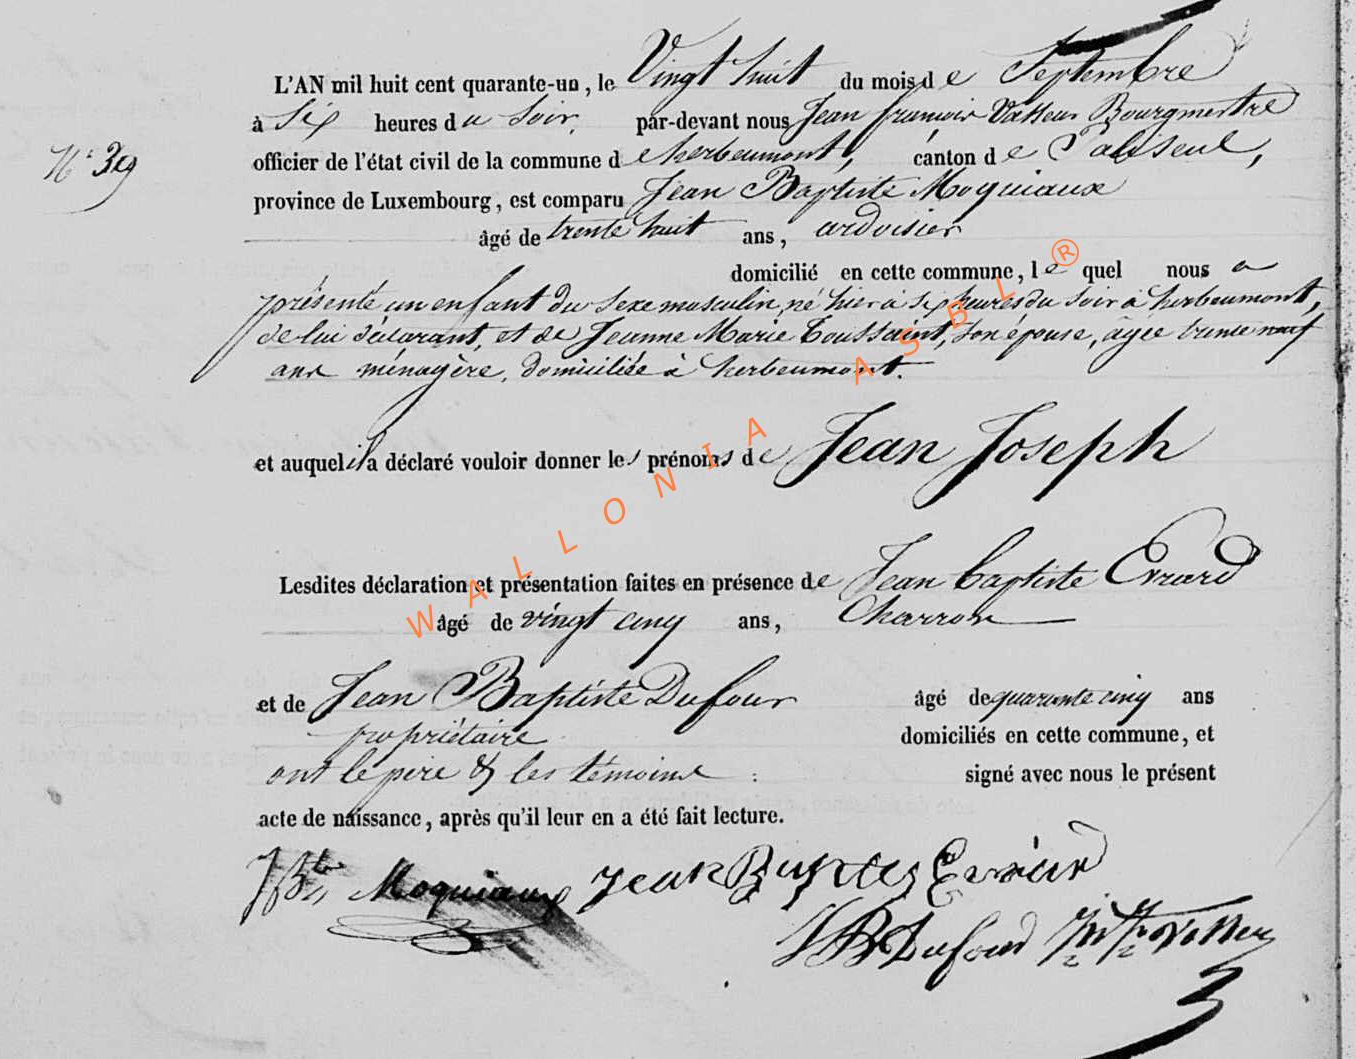 L'AN mil huit cent quarante-un, le Vingt huit du mois de Septembre
à Six heures du Soir, par-devant nous Jean françois Vasseur Bourgmestre
officier de l'état civil de la commune d'herbeumont, canton de Paliseul,
N°
province de Luxembourg, est comparu Jean Baptiste Moquiaux
âgé de trente huit ans, ardoisier
domicilié en cette commune, lequel nous a
présenté un enfant du Sexe masculin, né hier à Six heures du Soir à herbeumont,
de lui déclarant, et de Jeanne Marie Toussaint, Son épouse, âgée trente neuf
ans ménagère, domiciliée à herbeumont.
et auquel il a déclaré vouloir donner les prénoms de Jean Joseph
Lesdites déclaration et présentation faites en présence de Jean baptiste Evrard
âgé de vingt cinq ans, Charron
et de Jean Baptiste Dufour âgé de quarante cinq ans
propriétaire domiciliés en cette commune, et
ont le père & les témoins signé avec nous le présent
acte de naissance, après qu'il leur en a été fait lecture.
JBte Moquiaux Jean Baptiste Evrard
JB Dufour
WALLONIA ASBL ®